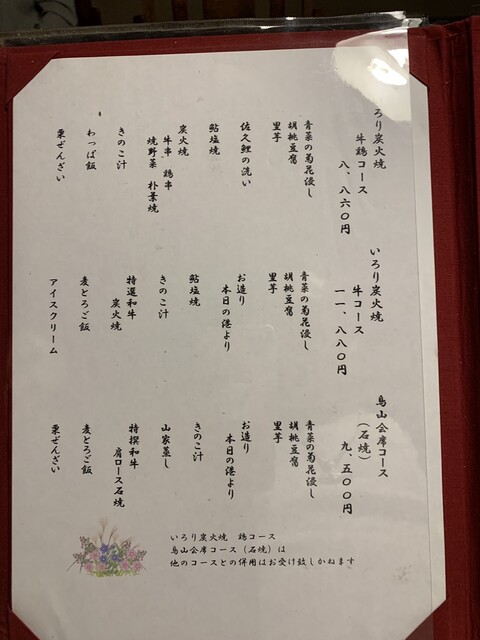 いろり炭火焼
牛鶏コース
八、八六〇円
青菜の菊花浸し
胡桃豆腐
里芋
佐久鯉の洗い
鮎塩焼
炭火焼
牛串 鶏串
焼野菜 朴葉焼
きのこ汁
わっぱ飯
栗ぜんざい
いろり炭火焼
牛コース
一一、八八〇円
青菜の菊花浸し
胡桃豆腐
里芋
お造り
本日の港より
鮎塩焼
きのこ汁
特選和牛
炭火焼
麦とろご飯
アイスクリーム
鳥山会席コース
（石焼）
九、五〇〇円
青菜の菊花浸し
胡桃豆腐
里芋
お造り
本日の港より
きのこ汁
山家蒸し
特撰和牛
肩ロース石焼
麦とろご飯
栗ぜんざい
いろり炭火焼 鶏コース
鳥山会席コース（石焼）は
他のコースとの併用はお受け致しかねます